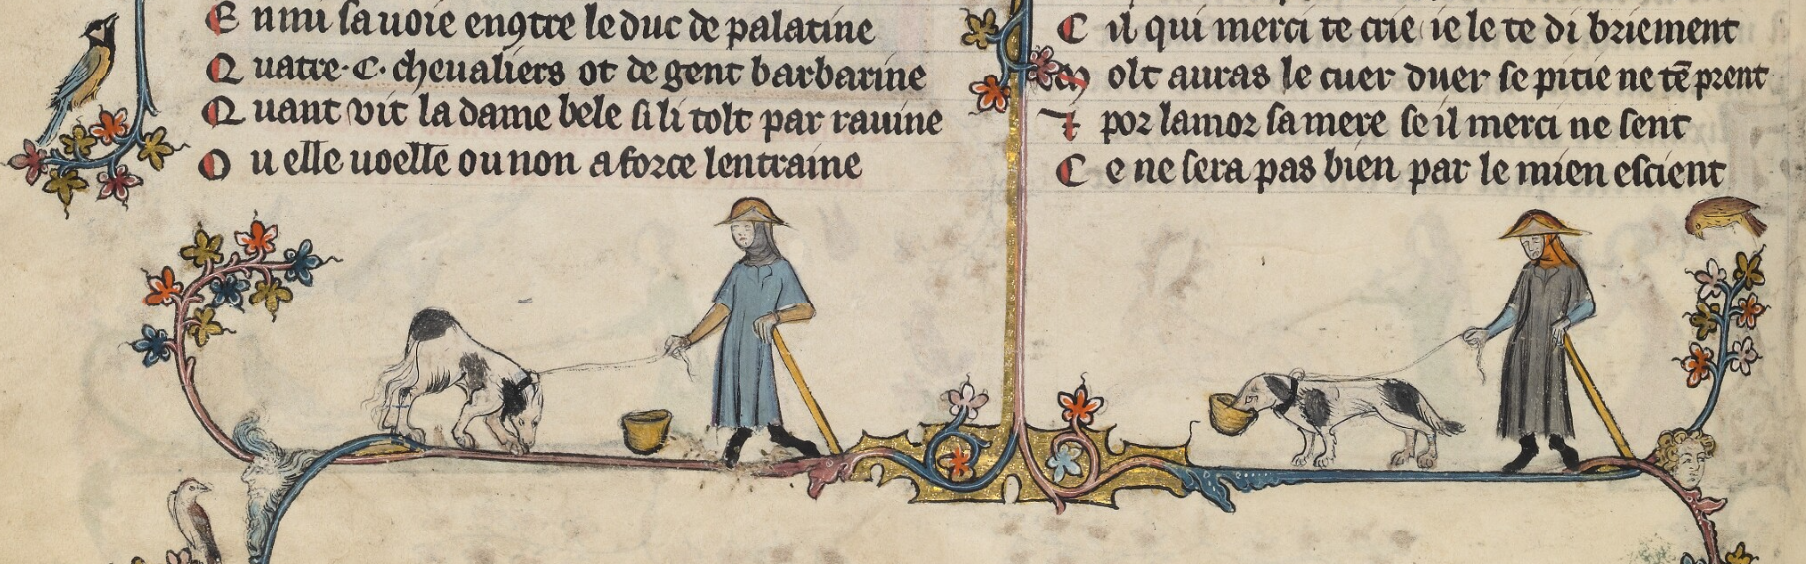 E nmi sa uoie en9tre le duc de palatine
Q uatre · C · cheualiers ot de gent barbarine
Q uant vit la dame bele si li tolt par rauine
O u elle uoelle ou non a force lentraine
C il qui merci te crie ie le te di briement
M olt auras le cuer duer se pitie ne tẽ prent
⁊ por lamor sa mere se il merci ne sent
C e ne sera pas bien par le mien escient